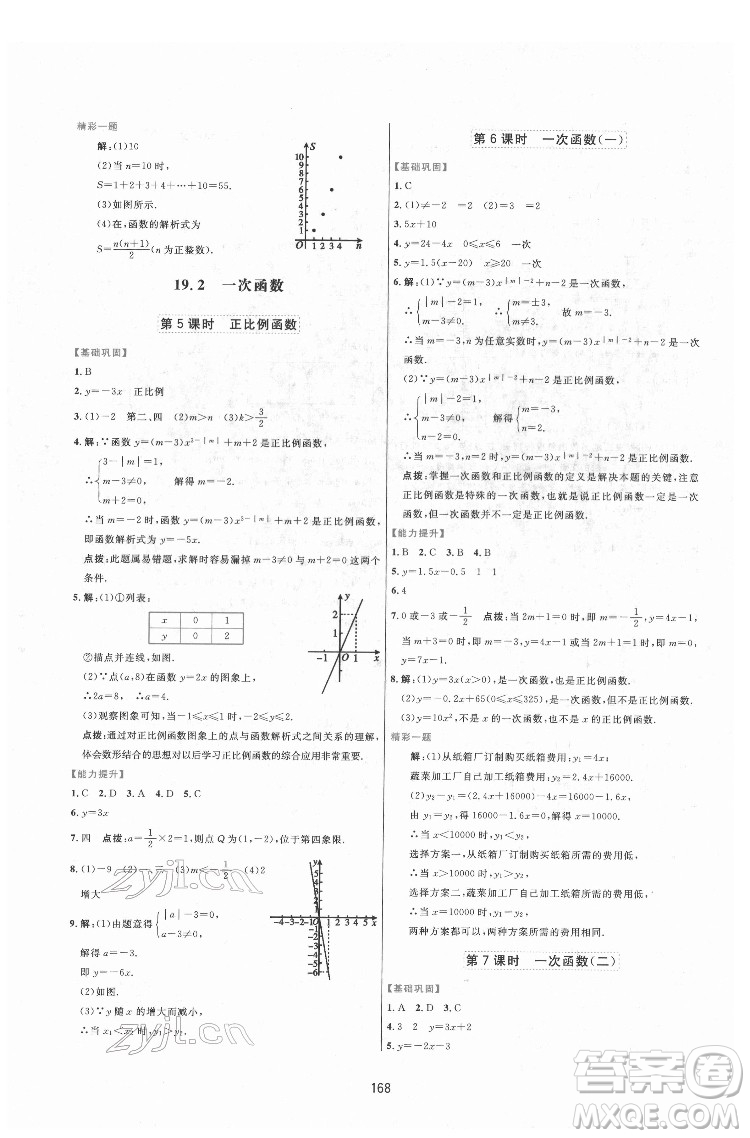 精彩一题
解:(1)10
(2)当 n=10时,
S=1+2+3+4+…+10=55.
(3)如图所示.
(4)在,函数的解析式为
S=n(n+1)/2(n 为正整数).
19.2 一次函数
第5课时 正比例函数
【基础巩固】
1.B
2.y=-3x 正比例
3.(1)-2 第二、四 (2)m>n (3)k>3/2
4.解:∵函数 y=(m-3)x^(3-|m|)+m+2是正比例函数,
∴{3-|m|=1, m-3≠0, 解得 m=-2.
∴当 m=-2时,函数 y=(m-3)x^(3-|m|)+m+2是正比例函数,
即函数解析式为 y=-5x.
点拨:此题属易错题,解时容易漏掉 m-3≠0与 m+2=0这两个
条件.
5.解:(1)①列表:
x 0 1
y 0 2
②描点并连线,如图.
(2)∵点(a,8)在函数 y=2x 的图象上,
∴2a=8,∴a=4.
(3)观察图象可知,当-1≤x≤1时,-2≤y≤2.
点拨:通过对正比例函数图象上的点与函数解析式之间关系的理解,
体会数形结合的思想对以后学习正比例函数的综合应用非常重要.
【能力提升】
1.C 2.D 3.A 4.D 5.C
6.y=3x
7.四 点拨:a=1/2×2=1,则点 Q 为(1,-2),位于第四象限.
8.(1)-9 (2)- (3)m<-1/2 (4)2
增大
9.解:(1)由题意得{|a|-3=1, a-4≠0.
解得 a=-4.
(2)如图.
(3)∵y 随 x 的增大而减小,
∴当 x₁<x₂时,y₁>y₂.
第6课时 一次函数(一)
【基础巩固】
1.C
2.(1)≠-2 =2 (2)=3 =2
3.5x+10
4.y=24-4x 0≤x≤6 一次
5.y=1.5(x-20) x≥20 一次
6.解:(1)∵y=(m-3)x^(|m|-2)+n-2是一次函数,
∴{|m|-2=1, m-3≠0. ∴{m=±3, m≠3.
∴当 m=-3,n 为任意实数时,y=(m-3)x^(|m|-2)+n-2是一次
函数.
(2)∵y=(m-3)x^(|m|-2)+n-2是正比例函数,
∴{n-2=0, |m|-2=1, m-3≠0. 解得{n=2, m=-3.
∴当 m=-3,n=2时,y=(m-3)x^(|m|-2)+n-2是正比例函数.
点拨:掌握一次函数和正比例函数的定义是解决本题的关键,注意
正比例函数是特殊的一次函数,也就是说正比例函数一定是一次
函数,但一次函数不一定是正比例函数.
【能力提升】
1.B 2.C 3.C 4.B
5.y=1.5x-0.5 1 1
6.4
7.0或-3或-1/2 点拨:当2m+1=0时,即 m=-1/2,满足题意;
当 m+3=0时,即 m=-3,满足题意;当 m=0时,也满足题意.
8.解:(1)y=3x(x>0),是一次函数,也是正比例函数.
(2)y=-0.2x+65(0≤x≤325),是一次函数,但不是正比例函数.
(3)y=10x²,不是 x 的一次函数,也不是 x 的正比例函数.
精彩一题
解:(1)从纸箱厂订制购买纸箱费用:y₁=4x;
蔬菜加工厂自己加工纸箱费用:y₂=2.4x+16000.
(2)y₂-y₁=(2.4x+16000)-4x=16000-1.6x,
由 y₁=y₂,得16000-1.6x=0,解得 x=10000.
∴当 x<10000时,y₁<y₂,
选择方案一,从纸箱厂订制购买纸箱所需的费用低,
∴当 x>10000时,y₁>y₂,
选择方案二,蔬菜加工厂自己加工纸箱所需的费用低,
∴当 x=10000时,y₁=y₂,
两种方案都可以,两种方案所需的费用相同.
第7课时 一次函数(二)
【基础巩固】
1.A 2.D 3.C
4.3 2 y=3x+2
5.y=-x-3
168
zyjl.cn
答案圈